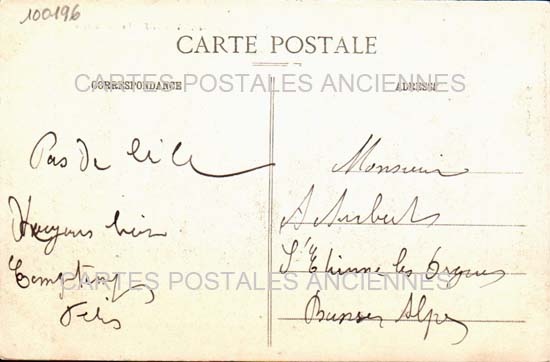 100196
CARTE POSTALE
CARTES POSTALES ANCIENNES
CORRESPONDANCE
ADRESSE
Pas de
bien
Monsieur
A Aubert
St Etienne les Orgues
Basses Alpes
CARTES POSTALES ANCIENNES